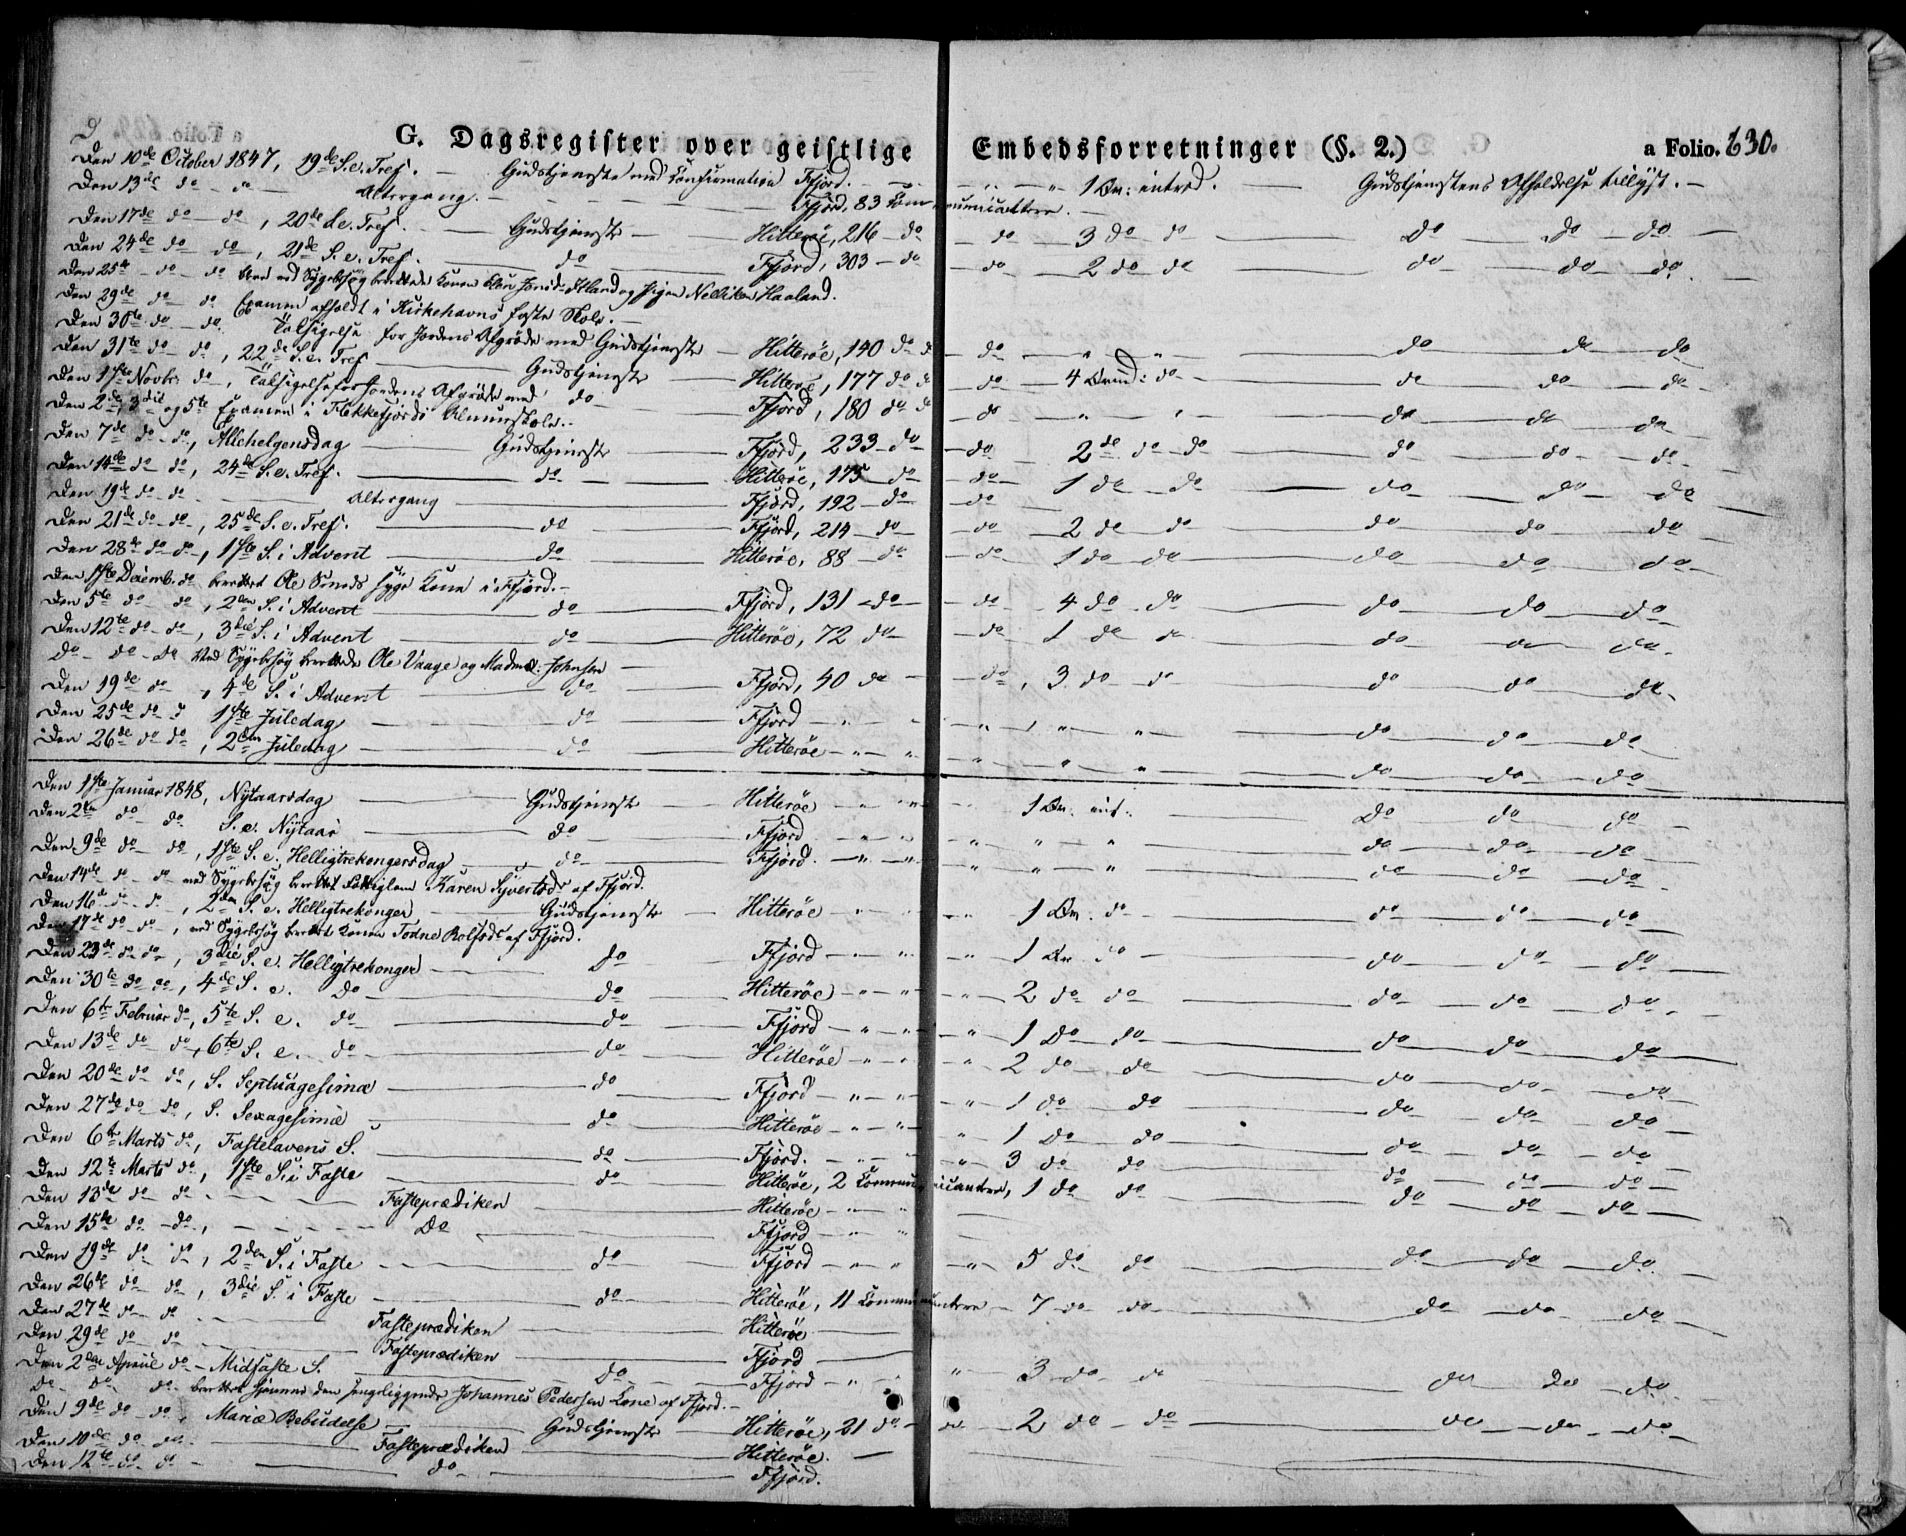 G. Dagsregister over geistlige Embedsforretninger (§. 2.) a Folio. 630.
Den 10de October 1847, 19de S. e. Tref. — Gudstjeneste med Confirmation Ffjord. — " — " 1 Br: introd. — Gudstjenestens Afholdelse tillyst. —
Den 13de do — do — Altergang. — Ffjord, 83 Communicantere. —
Den 17de do — do, 20de S. e. Tref. — Gudstjeneste — Hitterøe, 216 — do — do — 3 do — do — Do — Do — do —
Den 24de do — do, 21de S. e. Tref. — do — Ffjord, 303 — do — do — 2 do do — do — do — do
Den 25de — do — do ved Sygebesøg berettede Konen og Pigen Haaland.
Den 29de do do Examen afholdt i Kirkehavns faste Skole. —
Den 30te do — do. Taksigelse for Jordens Afgrøde med Gudstjeneste — Hitterøe, 140 do — do — " " — do — do — do
Den 31te do — do, 22de S. e. Tref — Gudstjeneste — Hitterøe, 177 do — do — 4 do — do — do — do —
Den 1ste Novbr. do, Taksigelse for Jordens Afgrøde med do — Ffjord, 180 do — do — " " — do — do — do
Den 2de, 3die og 5te Examen i Flekkefjords Almueskole. —
Den 7de do — do, Allehelgensdag — Gudstjeneste — Ffjord, 233 — do — do — 2 do do — do — do — do —
Den 14de do — do, 24de S. e. Tref. — do — Hitterøe, 175 — do — do — 1 do — do — do — do — do
Den 19de do — do — Altergang — Ffjord, 192 — do — do —
Den 21de do — do, 25de S. e. Tref. — do — Ffjord, 214 — do — do — 2 do — do — do — do — do
Den 28de do — do, 1ste S. i Advent — do — Hitterøe, 88 — do — do — 1 do do — do — do — do —
Den 1ste Decemb. do berettet Ole syge Kone i Ffjord. —
Den 5te do — do, 2den S. i Advent — do — Ffjord, 131 — do — do — 4 do — do — do — do — do —
Den 12te do — do, 3die S. i Advent — do — Hitterøe, 72 do — do — 1 do do — do — do — do —
do — do — do ved Sygebesøg berettede Ole Vaage og Madme: Johnsen —
Den 19de do, 4de S. i Advent — do — Ffjord, 40 do — do, 3 do — do — do — do — do —
Den 25de do — 1ste Juledag — do — Ffjord — " — " " — do — do — do
Den 26de do do, 2den Juledag — do — Hitterøe — " — " — " " — do — do — do
Den 1ste Januar 1848, Nytaarsdag — Gudstjeneste — Hitterøe — " — " 1 Br. int. — Do — do — do —
Den 2den do — do S. e. Nytaar — do — Ffjord — " — " — " " — do — do — do —
Den 9de do — do, 1ste S. e. Helligtrekongersdag — do — Ffjord. — " — " — " " — do — do — do —
Den 14de do — do ved Sygebesøg berettet Karen Syvertsdr af Ffjord.
Den 16de do — do, 2den S. e. Helligtrekonger — Gudstjeneste — Hitterøe — " — 1 Br. do — do — do — do
Den 17de do — do, ved Sygebesøg berettet Konen Todne Rolfsdr af Ffjord.
Den 23de do do, 3die S. e. Helligtrekonger — do — Ffjord — " — " — 1 Br do — do — do — do —
Den 30te do do, 4de S. e. Do — do — Hitterøe — " — " — 2 do do — do — do — do —
Den 6te Februar do, 5te S. e. do — do — Ffjord — " — " — 1 Do do — do — do — do —
Den 13de do do, 6te S. e. do — do — Hitterøe — " — " 2 do do — do — do — do
Den 20de do — do, S. Septuagesimæ — do — Ffjord — " — " — 1 do do — do — do — do —
Den 27de do do, S. Sexagesimæ — do — Hitterøe — " — " — 1 Do do — do — do — do —
Den 6te Marts do, Fastelavens S. — do — Ffjord. — " — " — 3 do do — do — do — do —
Den 12te Marts do, 1ste S. i Faste — do — Hitterøe, 2 Communicantere, 1 do do — do — do — do —
Den 13de do — do — Fasteprædiken — Hitterøe — " "
Den 15de do — do, — Do — Ffjord — " "
Den 19de do do, 2den S. i Faste — do — Ffjord — " — " — 5 do do — do — do — do —
Den 26de do — do, 3die S. i Faste — do — Hitterøe, 11 Communicantere — 7 do do — do — do — do
Den 27de do — do — Fasteprædiken — Hitterøe
Den 29de do do — Fasteprædiken — Ffjord
Den 2den April do — Midfaste S. — do — Ffjord — " — " 3 do do — do — do — do
Do — do — do berettet hjemme den sengeliggende Johannes Pedersen Kone af Ffjord. —
Den 9de do do, Mariæ Bebudelse — Gudstjeneste — Hitterøe, 21 do — do — 2 do — do — do — do — do —
Den 10de do do. — Fasteprædiken — Hitterøe. —
Den 12te do do — do — Ffjord.